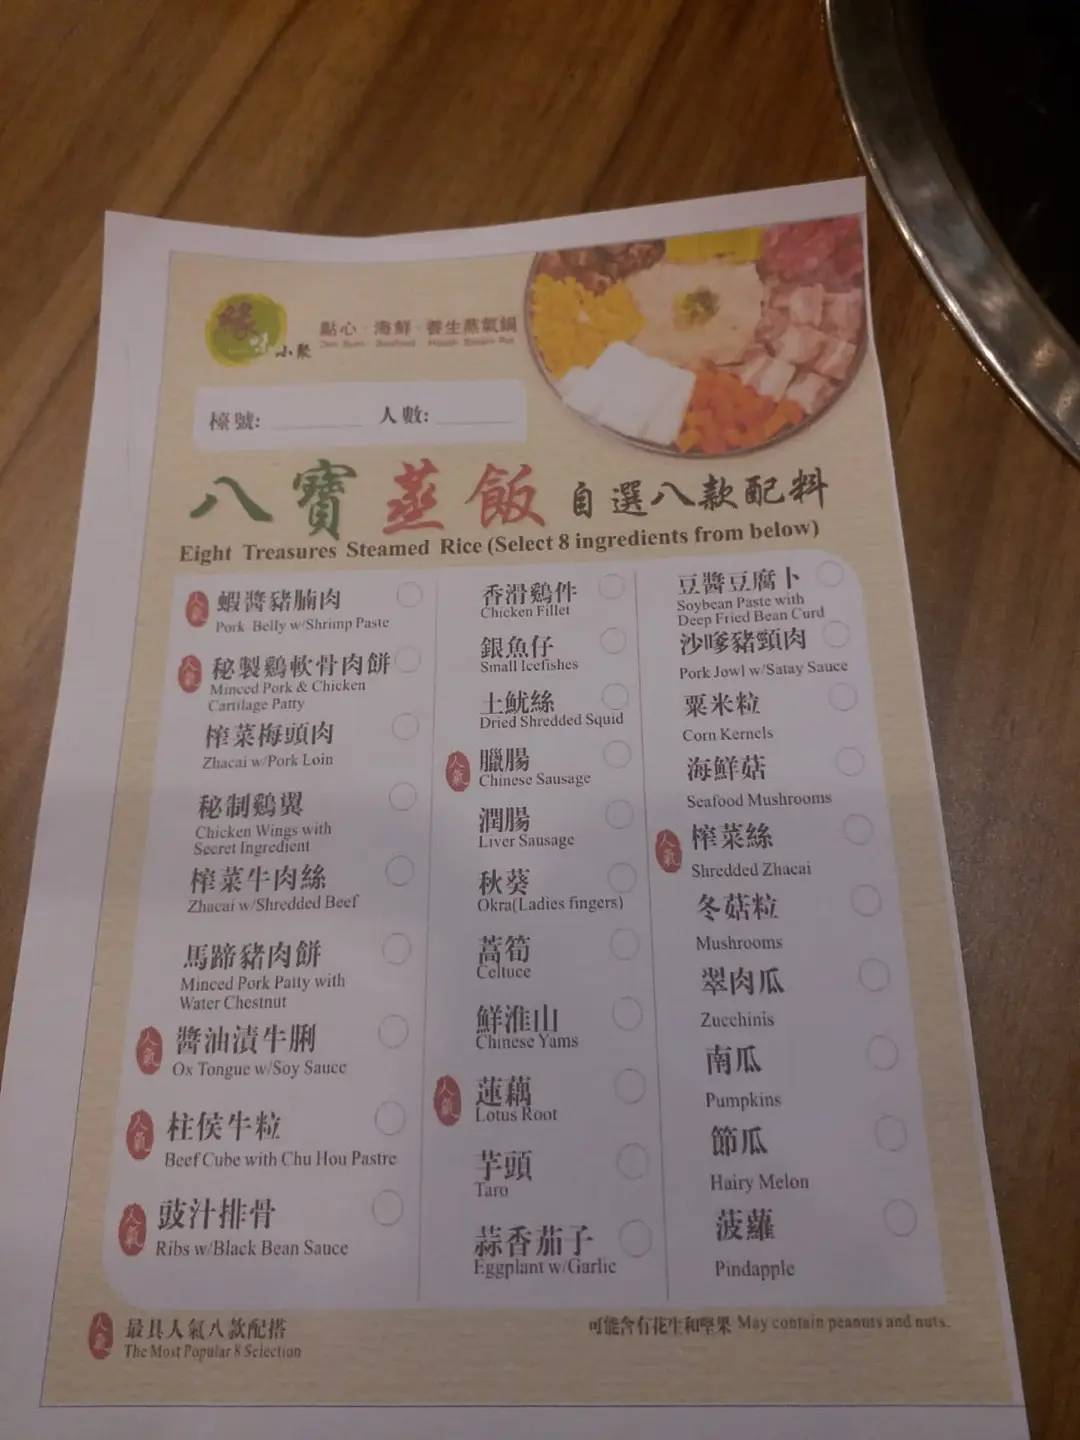 小聚
點心·海鮮·養生蒸氣鍋
Dim Sum · Seafood · Health Steam Pot
檯號: 人數:
八寶蒸飯 自選八款配料
Eight Treasures Steamed Rice (Select 8 ingredients from below)
人氣 蝦醬豬腩肉
Pork Belly w/Shrimp Paste
人氣 秘製鷄軟骨肉餅
Minced Pork & Chicken
Cartilage Patty
榨菜梅頭肉
Zhacai w/Pork Loin
秘制鷄翼
Chicken Wings with
Secret Ingredient
榨菜牛肉絲
Zhacai w/Shredded Beef
馬蹄豬肉餅
Minced Pork Patty with
Water Chestnut
人氣 醬油漬牛脷
Ox Tongue w/Soy Sauce
人氣 柱侯牛粒
Beef Cube with Chu Hou Pastre
人氣 豉汁排骨
Ribs w/Black Bean Sauce
香滑鷄件
Chicken Fillet
銀魚仔
Small Icefishes
土魷絲
Dried Shredded Squid
人氣 臘腸
Chinese Sausage
潤腸
Liver Sausage
秋葵
Okra(Ladies fingers)
萵筍
Celtuce
鮮淮山
Chinese Yams
人氣 蓮藕
Lotus Root
芋頭
Taro
蒜香茄子
Eggplant w/Garlic
豆醬豆腐卜
Soybean Paste with
Deep Fried Bean Curd
沙嗲豬頸肉
Pork Jowl w/Satay Sauce
粟米粒
Corn Kernels
海鮮菇
Seafood Mushrooms
人氣 榨菜絲
Shredded Zhacai
冬菇粒
Mushrooms
翠肉瓜
Zucchinis
南瓜
Pumpkins
節瓜
Hairy Melon
菠蘿
Pindapple
人氣 最具人氣八款配搭
The Most Popular 8 Selection
可能含有花生和堅果 May contain peanuts and nuts.